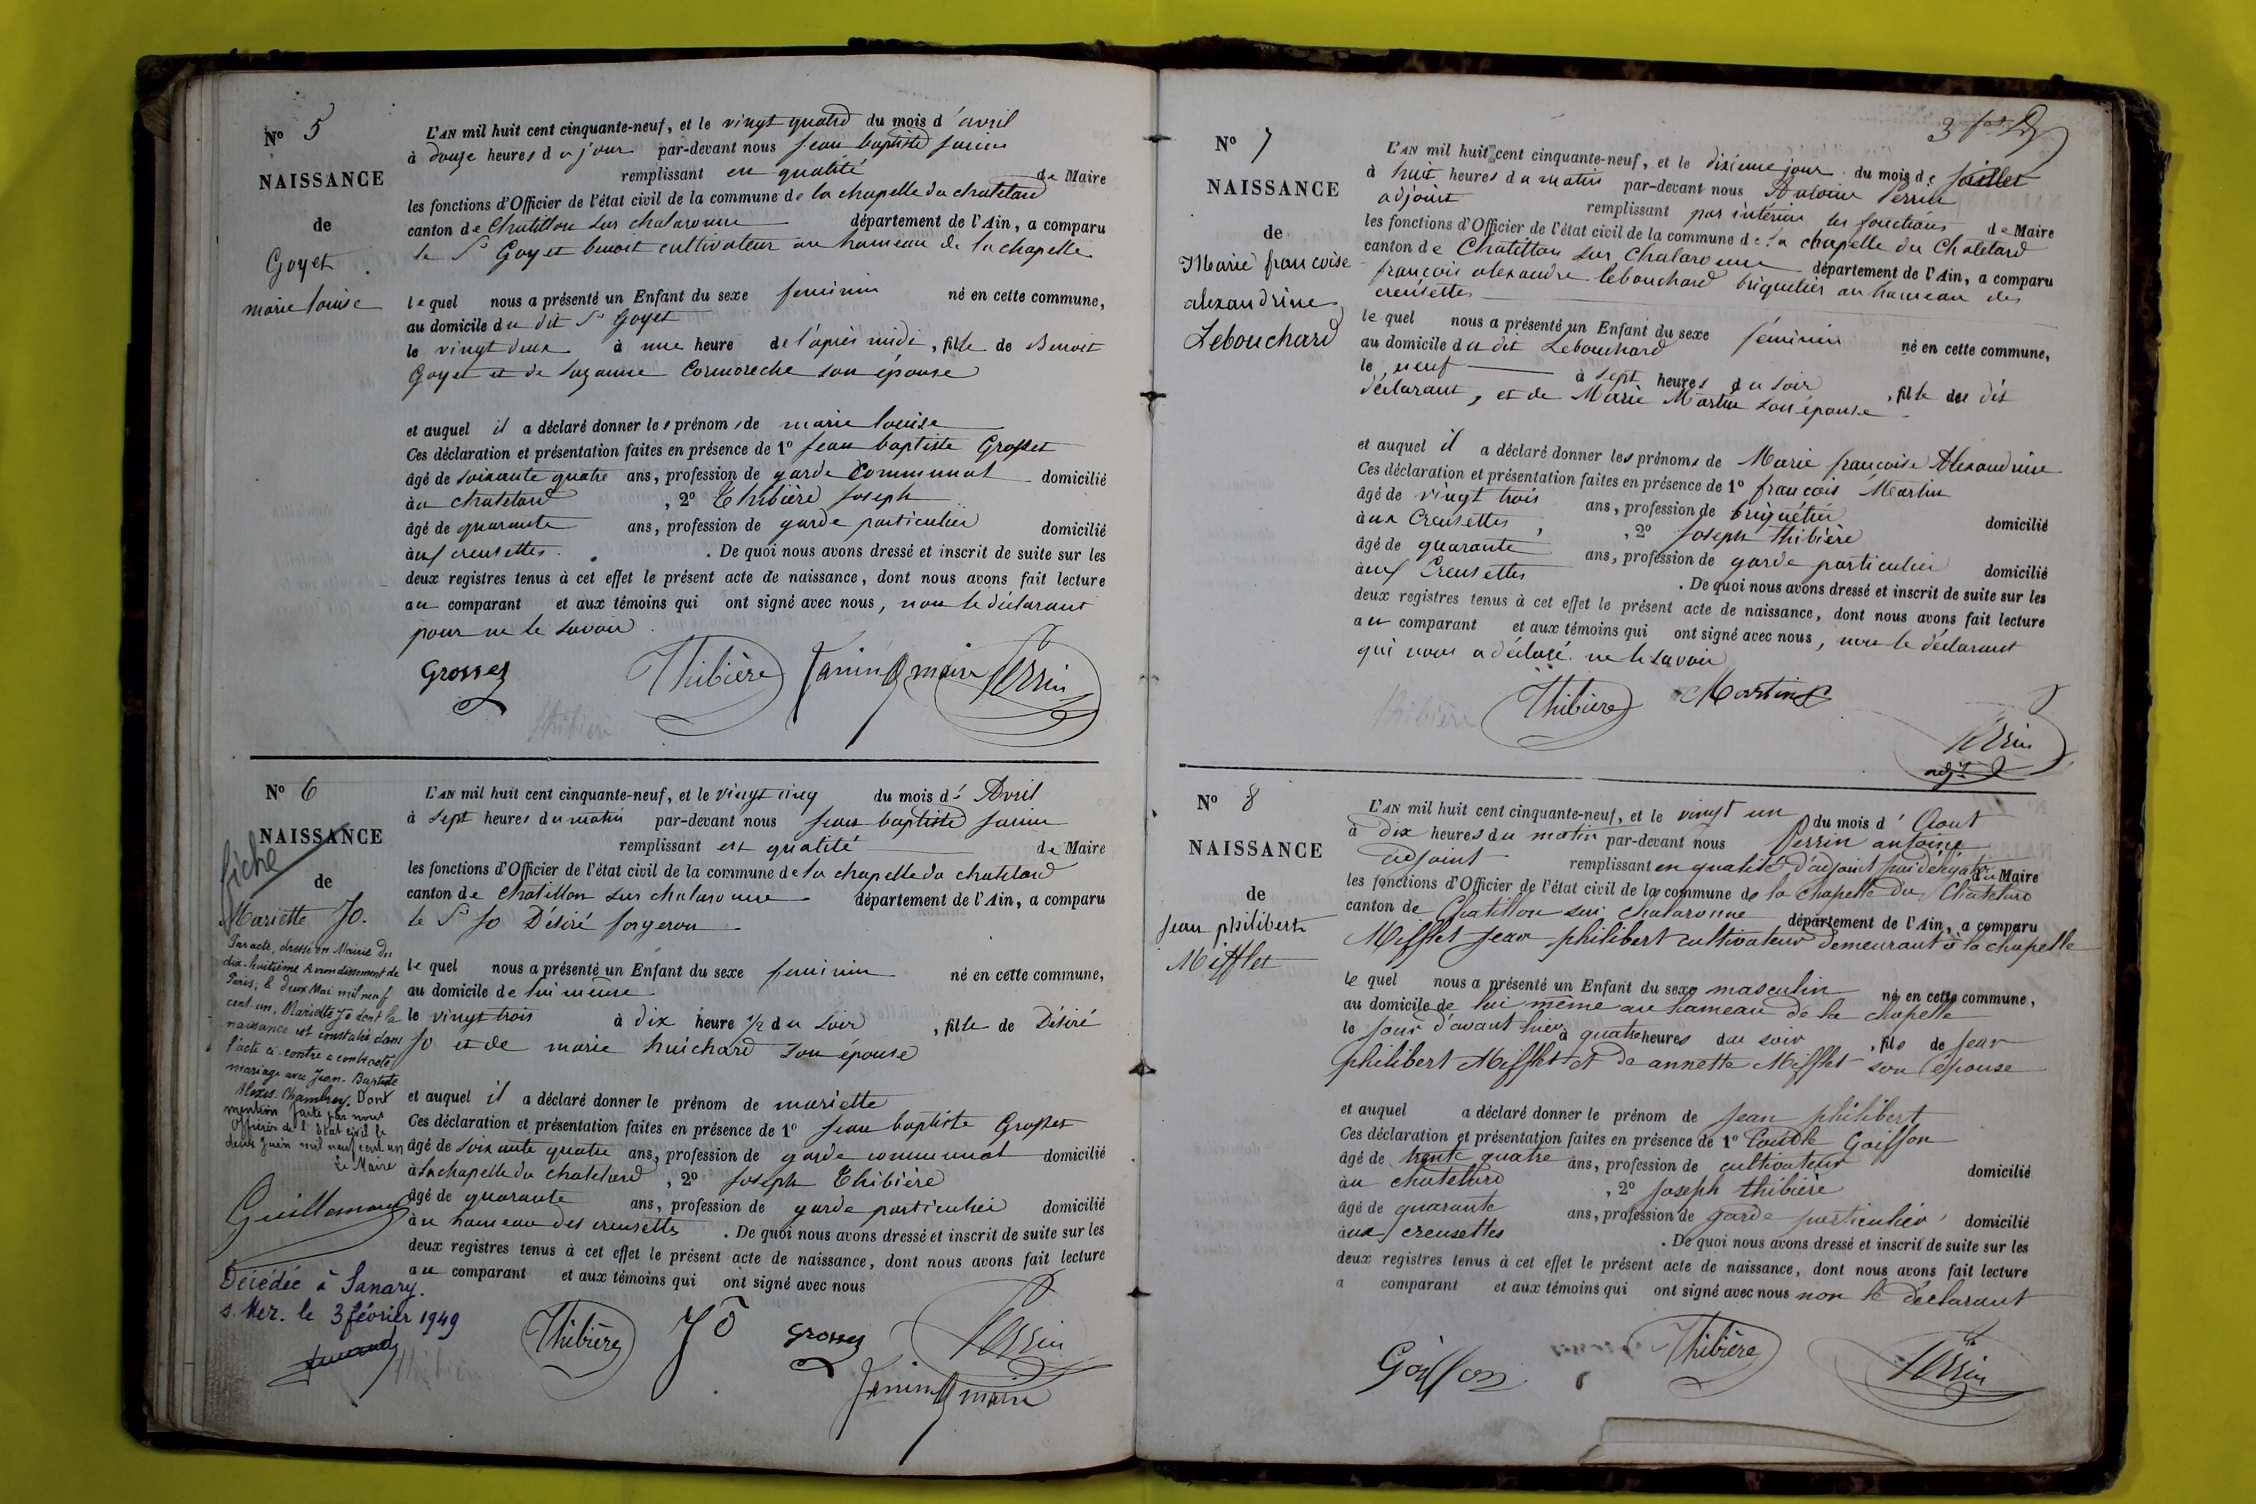 N° 5
NAISSANCE
de
Goyet
marie louise
L'AN mil huit cent cinquante-neuf, et le vingt quatre du mois d'avril
à douze heures du jour par-devant nous Jean baptiste Janin
remplissant en qualité de Maire
les fonctions d'Officier de l'état civil de la commune de la chapelle du chatelard
canton de Chatillon sur chalaronne département de l'Ain, a comparu
le Sr Goyet benoit cultivateur au hameau de la chapelle
lequel nous a présenté un Enfant du sexe feminin né en cette commune,
au domicile du dit Sr Goyet
le vingt deux à une heure de l'après midi, fille de Benoit
Goyet et de Suzanne Cormoreche son épouse
et auquel il a déclaré donner les prénoms de marie louise
Ces déclaration et présentation faites en présence de 1° Jean baptiste Grosset
âgé de soixante quatre ans, profession de garde Communal domicilié
au chatelard, 2° Thibière Joseph
âgé de quarante ans, profession de garde particulier domicilié
aux creusettes. De quoi nous avons dressé et inscrit de suite sur les
deux registres tenus à cet effet le présent acte de naissance, dont nous avons fait lecture
au comparant et aux témoins qui ont signé avec nous, non le déclarant
pour ne le savoir.
Grosset Thibière Janin maire Perrin
N° 6
NAISSANCE
fiche
de
Mariette Jo.
Par acte, dressé en Mairie du
dix-huitième Arrondissement de
Paris, le deux Mai mil neuf
cent un, Mariette Jo dont la
naissance est constatée dans
l'acte ci-contre a contracté
mariage avec Jean-Baptiste
Alexis Chambrey. Dont
mention faite par nous
Officier de l'Etat civil le
deux Juin mil neuf cent un
Le Maire
Décédée à Sanary.
s. Mer. le 3 février 1949
L'AN mil huit cent cinquante-neuf, et le vingt cinq du mois d' Avril
à sept heures du matin par-devant nous Jean baptiste Janin
remplissant en qualité de Maire
les fonctions d'Officier de l'état civil de la commune de la chapelle du chatelard
canton de Chatillon sur chalaronne département de l'Ain, a comparu
le Sr Jo Désiré forgeron
lequel nous a présenté un Enfant du sexe feminin né en cette commune,
au domicile de lui même
le vingt trois à dix heure ½ du soir, fille de Désiré
Jo et de marie huichard son épouse
et auquel il a déclaré donner le prénom de mariette
Ces déclaration et présentation faites en présence de 1° Jean baptiste Grosset
âgé de soixante quatre ans, profession de garde communal domicilié
à la chapelle du chatelard, 2° Joseph Thibière
âgé de quarante ans, profession de garde particulier domicilié
au hameau des creusettes. De quoi nous avons dressé et inscrit de suite sur les
deux registres tenus à cet effet le présent acte de naissance, dont nous avons fait lecture
au comparant et aux témoins qui ont signé avec nous
Thibière Jo Grosset Perrin
Janin maire
3
N° 7
NAISSANCE
de
Marie francoise
alexandrine
Lebouchard
L'AN mil huit cent cinquante-neuf, et le dixieme jour du mois de Juillet
à huit heures du matin par-devant nous Antoine Perrin
adjoint remplissant par intérim les fonctions de Maire
les fonctions d'Officier de l'état civil de la commune de la chapelle du Chatelard
canton de Chatillon sur Chalaronne département de l'Ain, a comparu
françois alexandre lebouchard briquetier au hameau des
creusettes
lequel nous a présenté un Enfant du sexe féminin né en cette commune,
au domicile du dit Lebouchard
le neuf à sept heures du soir, fille du dit
déclarant, et de Marie Martin son épouse
et auquel il a déclaré donner les prénoms de Marie françoise Alexandrine
Ces déclaration et présentation faites en présence de 1° françois Martin
âgé de vingt trois ans, profession de briquetier domicilié
aux Creusettes, 2° Joseph thibière
âgé de quarante ans, profession de garde particulier domicilié
aux Creusettes. De quoi nous avons dressé et inscrit de suite sur les
deux registres tenus à cet effet le présent acte de naissance, dont nous avons fait lecture
au comparant et aux témoins qui ont signé avec nous, non le déclarant
qui nous a déclaré ne le savoir
Thibière Martin
Perrin
adjt
N° 8
NAISSANCE
de
Jean philibert
Mifflet
L'AN mil huit cent cinquante-neuf, et le vingt un du mois d' Aout
à dix heures du matin par-devant nous Perrin antoine
adjoint remplissant en qualité d'adjoint par délégation du Maire
les fonctions d'Officier de l'état civil de la commune de la chapelle du Chatelard
canton de Chatillon sur chalaronne département de l'Ain, a comparu
Mifflet Jean philibert cultivateur demeurant à la chapelle
lequel nous a présenté un Enfant du sexe masculin né en cette commune,
au domicile de lui même au hameau de la chapelle
le jour d'avant hier à quatre heures du soir, fils de Jean
philibert Mifflet et de annette Mifflet son épouse
et auquel a déclaré donner le prénom de Jean philibert
Ces déclaration et présentation faites en présence de 1° Goiffon
âgé de trente quatre ans, profession de cultivateur domicilié
au chatelard, 2° Joseph thibière
âgé de quarante ans, profession de garde particulier domicilié
aux creusettes. De quoi nous avons dressé et inscrit de suite sur les
deux registres tenus à cet effet le présent acte de naissance, dont nous avons fait lecture
a comparant et aux témoins qui ont signé avec nous non le déclarant
Goiffon Thibière Perrin